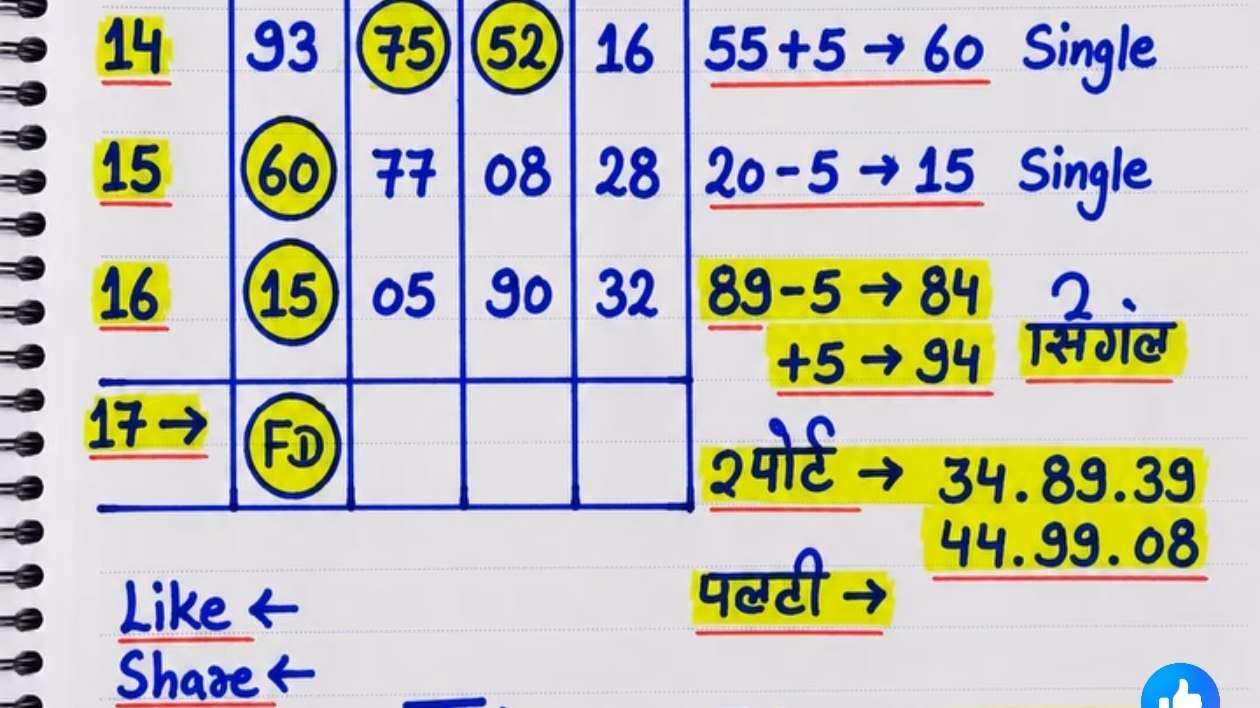 14 93 75 52 16 55+5 → 60 Single
15 60 77 08 28 20-5 → 15 Single
16 15 05 90 32 89-5 → 84 2
+5 → 94 सिगंल
17 → FD
2पोर्ट → 34.89.39
44.99.08
पलटी →
Like ←
Share ←